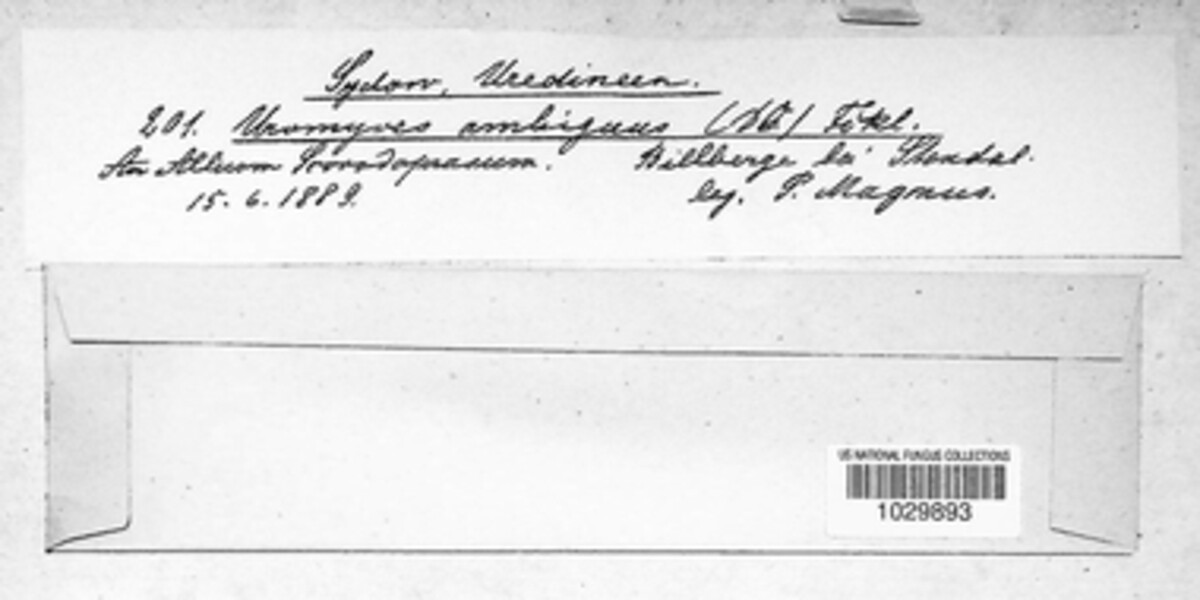 Sydow, Uredineen.
201. Uromyces ambiguus (DC) Fckl.
An Allium Scorodoprasum. Billberge bei Stendal.
15. 6. 1889. leg. P. Magnus.
US NATIONAL FUNGUS COLLECTIONS
1029893